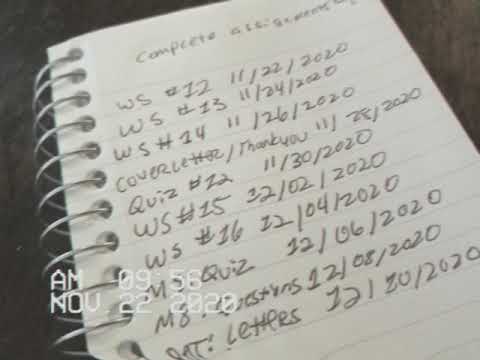 Complete assignments
WS #12 11/22/2020
WS #13 11/24/2020
WS #14 11/26/2020
COVER Letter/Thankyou 11/28/2020
Quiz #12 11/30/2020
WS #15 12/02/2020
WS #16 12/04/2020
Quiz 12/06/2020
Questions 12/08/2020
Letters 12/10/2020
AM 09:56
NOV. 22 2020